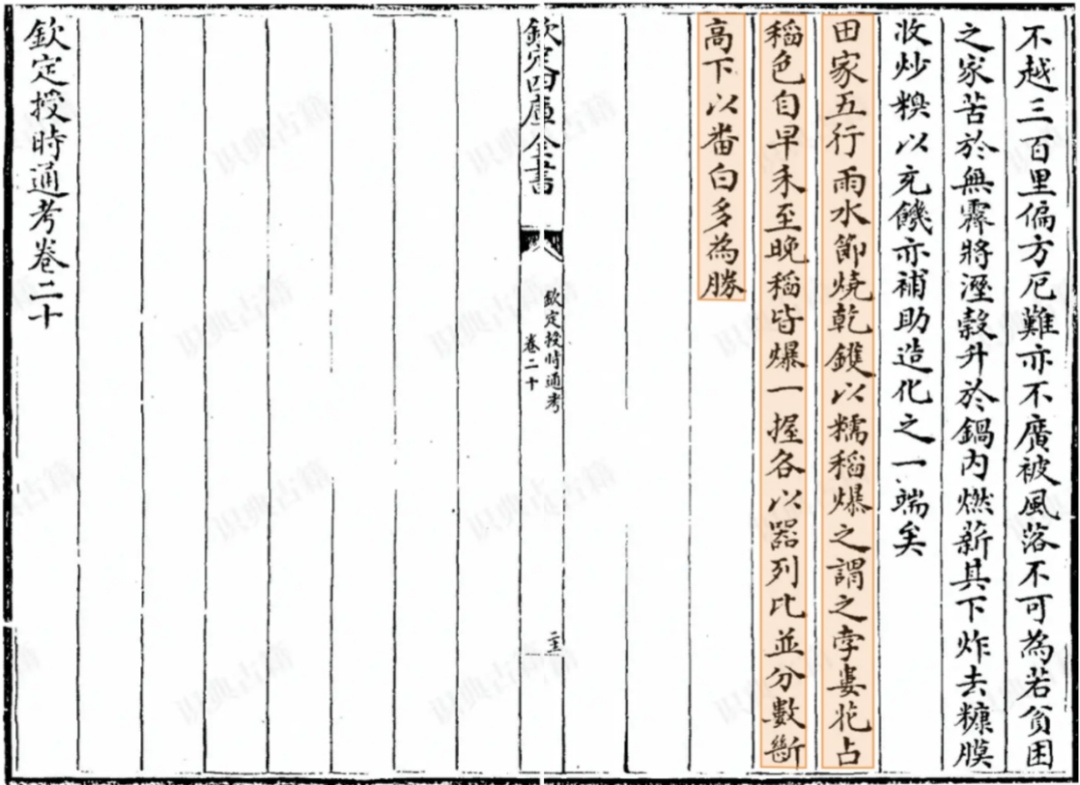 不越三百里偏方厄難亦不廣被風落不可為若貧困
之家苦於無霽將溼穀升於鍋内燃薪其下炸去糠膜
收炒糗以充饑亦補助造化之一端矣
田家五行雨水節燒乾鑊以糯稻爆之謂之孛婁花占
稻色自早禾至晚稻皆爆一握各以器列比並分數斷
高下以番白多為勝
欽定四庫全書
欽定授時通考
卷二十
欽定授時通考卷二十
識典古籍